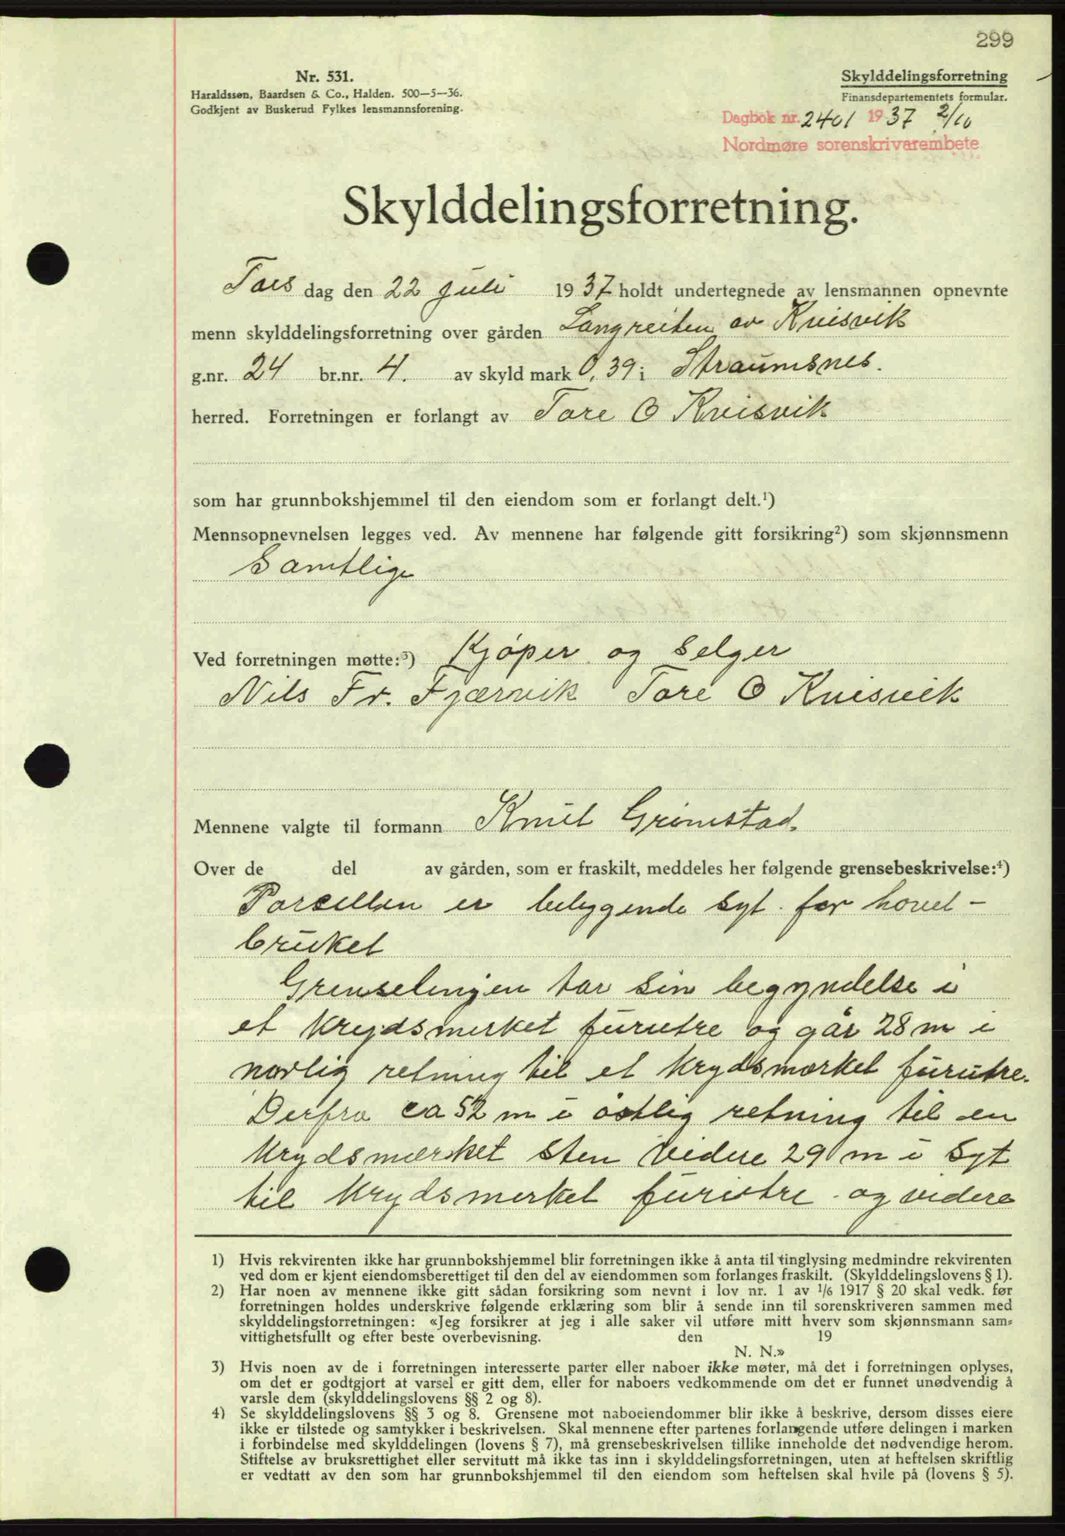 299
Nr. 531.
Haraldssøn, Baardsen & Co., Halden. 500—5—36.
Godkjent av Buskerud Fylkes lensmannsforening.
Skylddelingsforretning
Finansdepartementets formular.
Dagbok nr. 2401 1937 2/10
Nordmøre sorenskrivarembete
Skylddelingsforretning.
Tors dag den 22 juli 1937 holdt undertegnede av lensmannen opnevnte
menn skylddelingsforretning over gården Langreiten av Kvisvik
g.nr. 24 br.nr. 4. av skyld mark 0,39 i Straumsnes.
herred. Forretningen er forlangt av Tore O Kvisvik
som har grunnbokshjemmel til den eiendom som er forlangt delt.¹)
Mennsopnevnelsen legges ved. Av mennene har følgende gitt forsikring²) som skjønnsmenn
Samtlige
Ved forretningen møtte:³) Kjøper og Selger
Nils Fr. Fjærvik Tore O Kvisvik
Mennene valgte til formann Knut Grimstad.
Over de del av gården, som er fraskilt, meddeles her følgende grensebeskrivelse:⁴)
Parcellen er beliggende syt for hovet-
bruket
Grenselinjen tar sin begyndelse i
et krydsmerket furutre og går 28 m i
norlig retning til et krydsmerket furutre.
Derfra ca 52 m i østlig retning til en
krydsmærket sten videre 29 m i syt
til krydsmerket furutre og videre
1) Hvis rekvirenten ikke har grunnbokshjemmel blir forretningen ikke å anta til tinglysing medmindre rekvirenten
ved dom er kjent eiendomsberettiget til den del av eiendommen som forlanges fraskilt. (Skylddelingslovens § 1).
2) Har noen av mennene ikke gitt sådan forsikring som nevnt i lov nr. 1 av ¹/₆ 1917 § 20 skal vedk. før
forretningen holdes underskrive følgende erklæring som blir å sende inn til sorenskriveren sammen med
skylddelingsforretningen: «Jeg forsikrer at jeg i alle saker vil utføre mitt hverv som skjønnsmann sam-
vittighetsfullt og efter beste overbevisning. den 19
N. N.»
3) Hvis noen av de i forretningen interesserte parter eller naboer ikke møter, må det i forretningen oplyses,
om det er godtgjort at varsel er gitt dem, eller for naboers vedkommende om det er funnet unødvendig å
varsle dem (skylddelingslovens §§ 2 og 8).
4) Se skylddelingslovens §§ 3 og 8. Grensene mot naboeiendommer blir ikke å beskrive, dersom disses eiere
ikke er tilstede og samtykker i beskrivelsen. Skal mennene efter partenes forlangende utføre delingen i marken
i forbindelse med skylddelingen (lovens § 7), må grensebeskrivelsen tillike inneholde det nødvendige herom.
Stiftelse av bruksrettighet eller servitutt må ikke tas inn i skylddelingsforretningen, uten at heftelsen skriftlig
er vedtatt av den som har grunnbokshjemmel til den eiendom som heftelsen skal hvile på (lovens § 5).